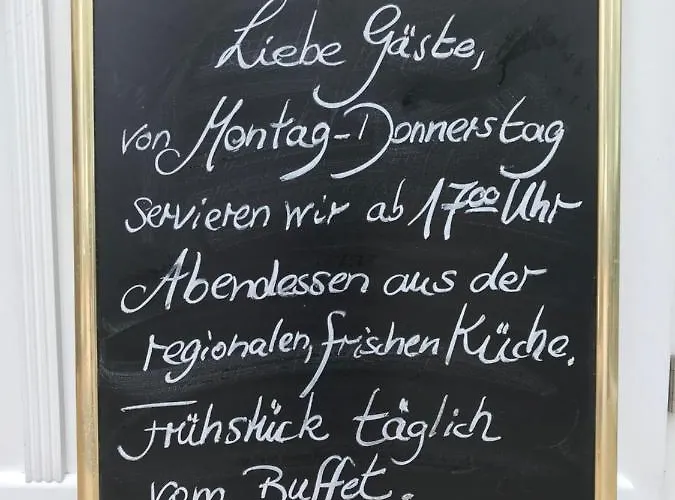 Liebe Gäste,
von Montag-Donnerstag
servieren wir ab 17⁰⁰ Uhr
Abendessen aus der
regionalen, frischen Küche.
Frühstück täglich
vom Buffet.